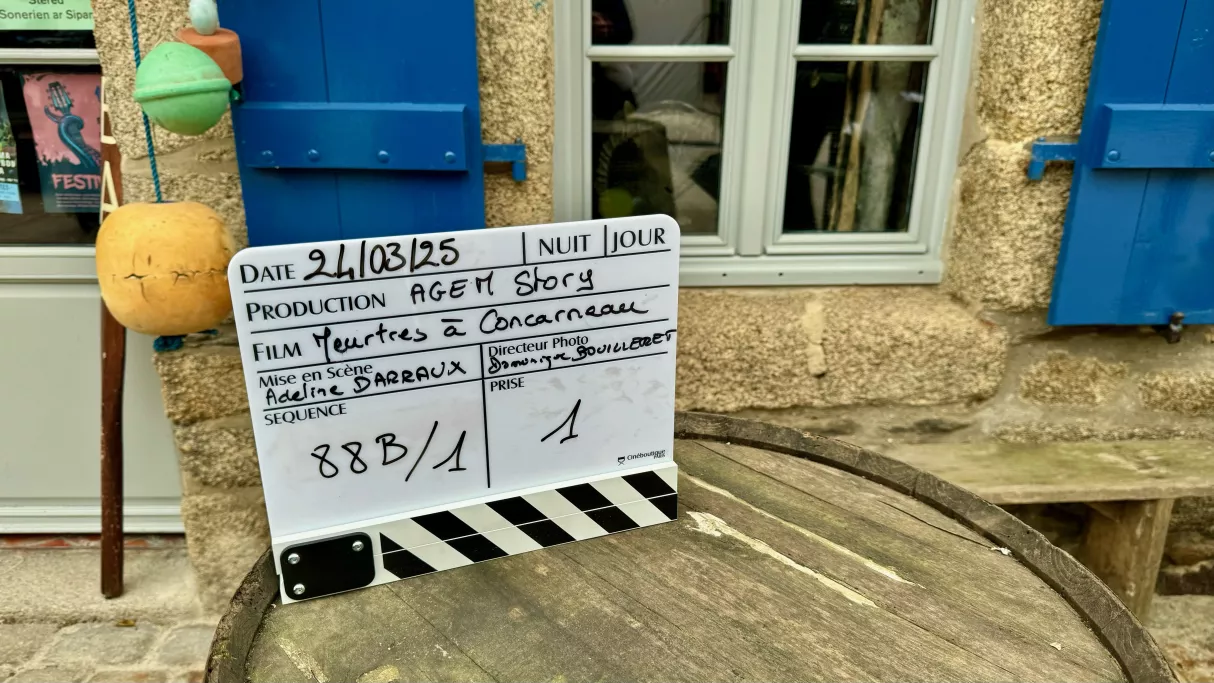 Stered
Sonerien ar Sipar
FESTI
DATE 24/03/25 NUIT JOUR
PRODUCTION AGEM Story
FILM Meurtres à Concarneau
Mise en Scène
Adeline DARRAUX
Directeur Photo
Dominique BOUILLERET
SEQUENCE
88B/1
PRISE
1
Cinéboutique
PARIS